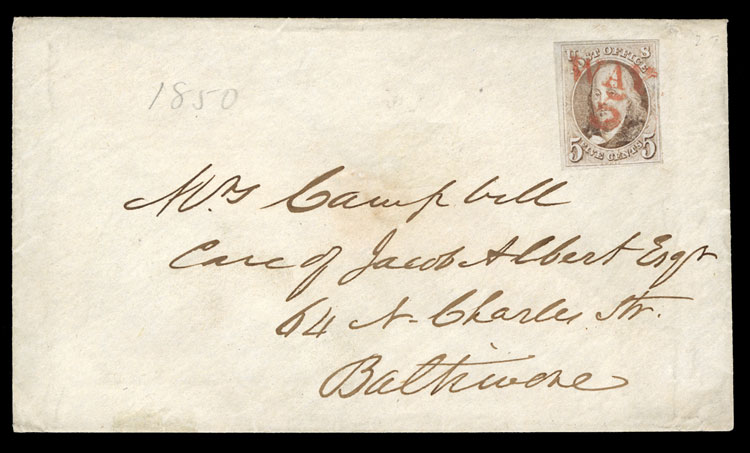 U S
POST OFFICE
MAY
5
5 FIVE CENTS 5
1850
Mrs Campbell
Care of Jacob Albert Esqr
64 N. Charles Str.
Baltimore